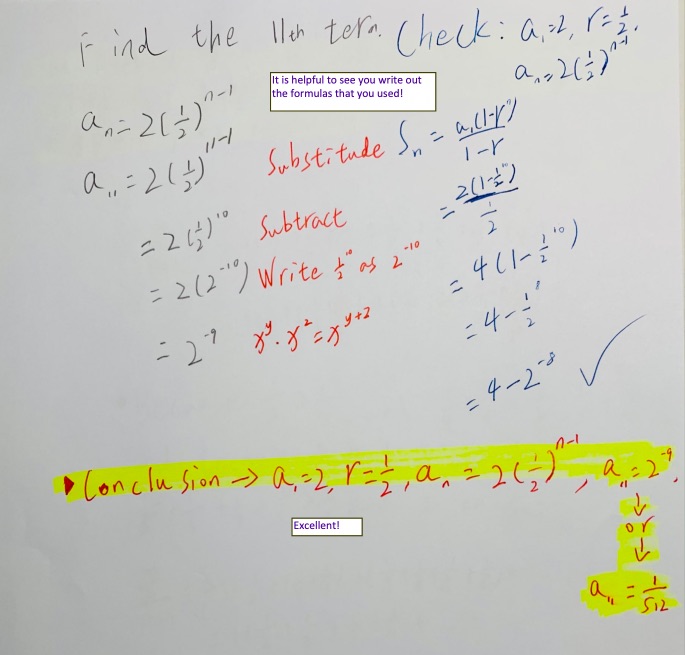 Find the 11th term.
Check: a₁=2, r=½.
aₙ=2(½)ⁿ⁻¹
It is helpful to see you write out
the formulas that you used!
aₙ=2(½)ⁿ⁻¹
a₁₁=2(½)¹¹⁻¹ Substitude
=2(½)¹⁰ Subtract
=2(2⁻¹⁰) Write ½¹⁰ as 2⁻¹⁰
=2⁻⁹ xʸ·x²=xʸ⁺²
Sₙ=a₁(1-rⁿ)/1-r
=2(1-½¹⁰)/½
=4(1-½¹⁰)
=4-½⁸
=4-2⁻⁸ ✓
Conclusion → a₁=2, r=½, aₙ=2(½)ⁿ⁻¹, a₁₁=2⁻⁹.
↓
or
↓
a₁₁=1/512
Excellent!